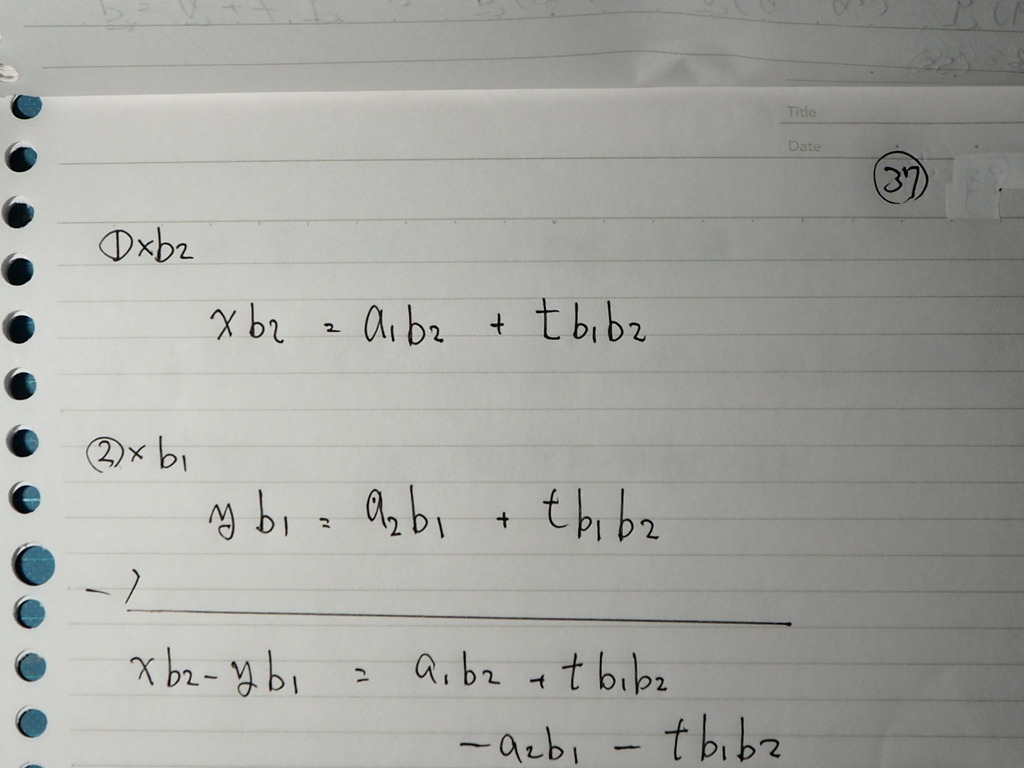 Title
Date
㊲
①×b₂
xb₂ = a₁b₂ + tb₁b₂
②×b₁
yb₁ = a₂b₁ + tb₁b₂
−)
xb₂−yb₁ = a₁b₂ + tb₁b₂
−a₂b₁ − tb₁b₂